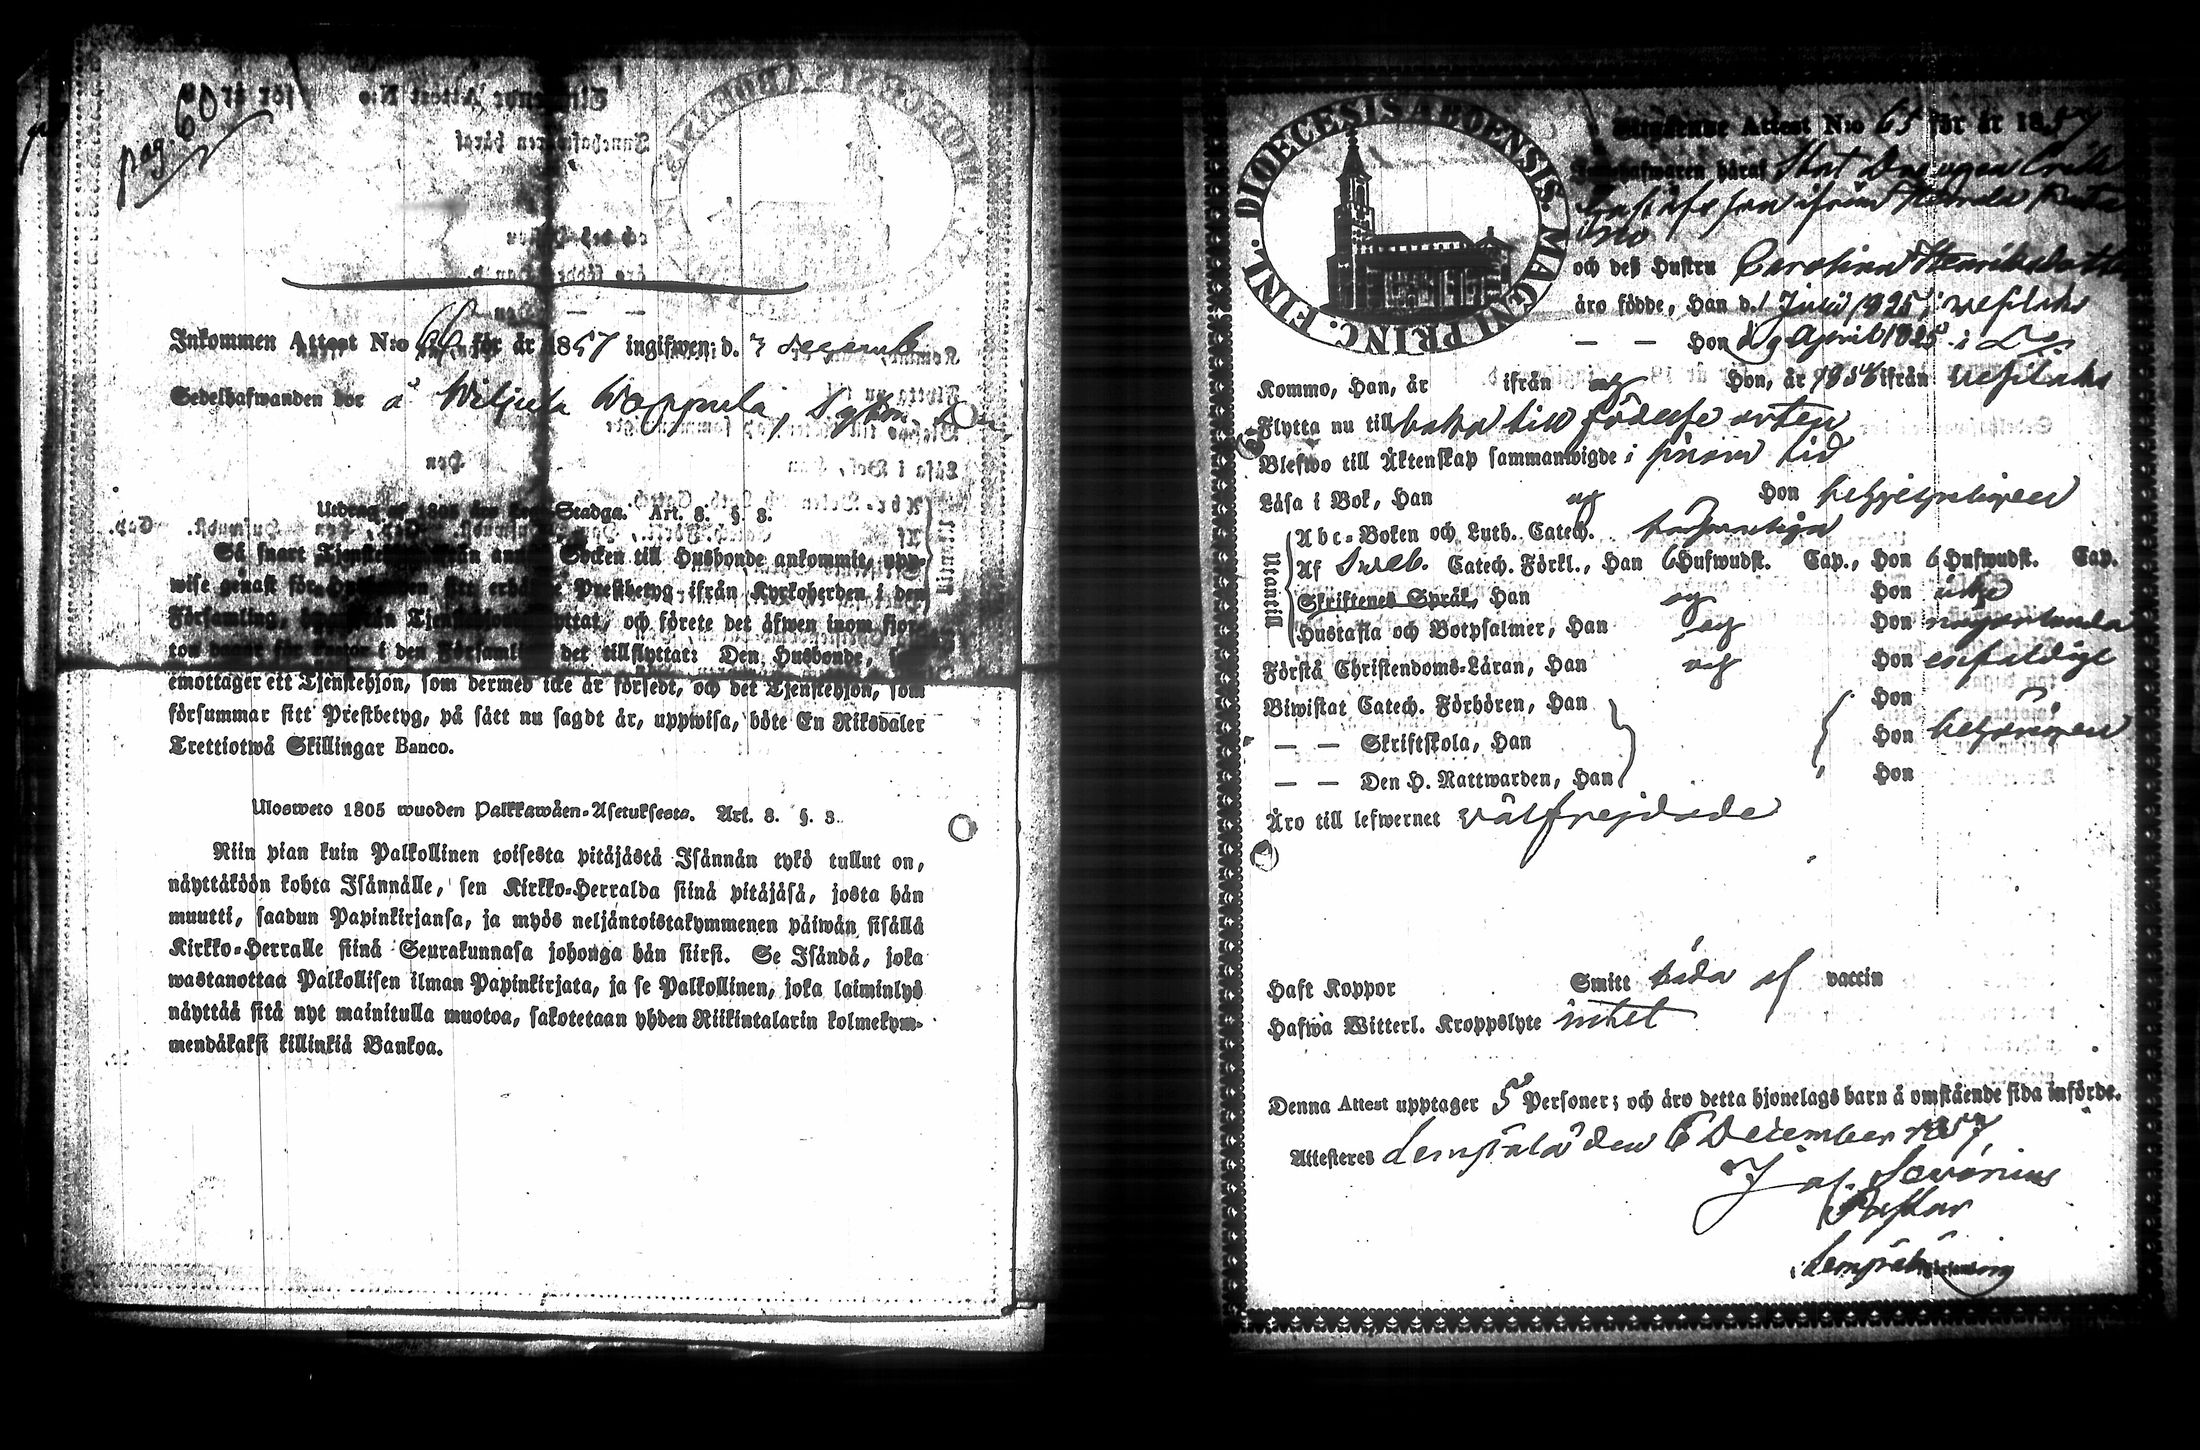 pag. 60
Inkommen Attest N:o 66 för år 1857 ingifwen; d. 7 decemb
Sedelhafwanden bor å Wiljula Woppula,
Utdrag af 1805 års Lego-Stadga. Art. 8. §. 3.
Så snart Tjenstehjon från annan Socken till Husbonde ankommit, upp-
wise genast för Husbonden sitt erhållne Prestbetyg ifrån Kyrkoherden i den
Församling, hwarifrån Tjenstehjonet flyttat, och förete det äfwen inom fjor-
ton dagar för Pastor i den Församling det tillflyttat: Den Husbonde, som
emottager ett Tjenstehjon, som dermed icke är försedt, och det Tjenstehjon, som
försummar sitt Prestbetyg, på sätt nu sagdt är, uppwisa, böte En Riksdaler
Trettiotwå Skillingar Banco.
Ulosweto 1805 wuoden Palkkawäen-Asetuksesta. Art. 8. §. 3.
Niin pian kuin Palkollinen toisesta pitäjästä Isännän tykö tullut on,
näyttäköön kohta Isännälle, sen Kirkko-Herralda siinä pitäjäsä, josta hän
muutti, saadun Papinkirjansa, ja myös neljäntoistakymmenen päiwän sisällä
Kirkko-Herralle siinä Seurakunnasa johonga hän siirsi. Se Isändä, joka
wastanottaa Palkollisen ilman Papinkirjata, ja se Palkollinen, joka laiminlyö
näyttää sitä nyt mainitulla muotoa, sakotetaan yhden Riikintalarin kolmekym-
mendäkaksi killinkiä Bankoa.
DIOECESIS ABOENSIS. MAGNI PRINC. FINL.
Utgående Attest N:o 65 för år 1857
Innehafwaren häraf Stat Drängen Erik
Gustafsson ifrån
och deß Hustru Carolina Henriksdotter
äro födde, Han d. 1 Julii 1825 i Vesilaks
— — Hon d 9 April 1825 i Do
Kommo, Han, år ifrån Hon, år 1856 ifrån Vesilaks
Flytta nu till baka till födelse orten
Blefwo till Äktenskap sammanwigde i sinom tid
Läsa i Bok, Han og Hon behjelpligen
Mantill
Abc-Boken och Luth. Catech.
Af Sveb. Catech. Förkl., Han 6 Hufwudst. Cap., Hon 6 Hufwudst. Cap.
Skriftenes Språk, Han og Hon icke
Hustafla och Botpsalmer, Han og Hon
Förstå Christendoms-Läran, Han og Hon enfaldigt
Biwistat Catech. Förhören, Han Hon
— — Skriftskola, Han Hon behörigen
— — Den H. Nattwarden, Han Hon
Äro till lefwernet välfrejdade
Haft Koppor Smitt båda af vaccin
Hafwa Witterl. Kroppslyte intet
Denna Attest upptager 5 Personer; och äro detta hjonelags barn å omstående sida införde.
Attesteres Lempälä den 6 December 1857,
Pastor
i Lempälä